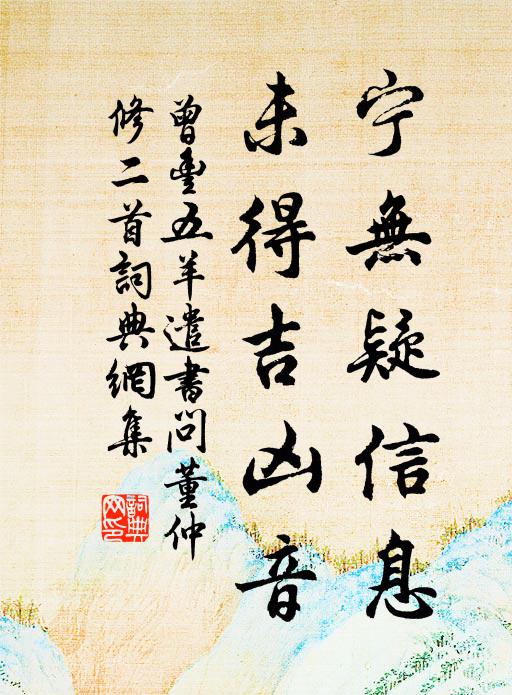 宁無疑信息
未得吉凶音
曾豊五羊遣書問董仲
修二首詞典網集
詞典
网印